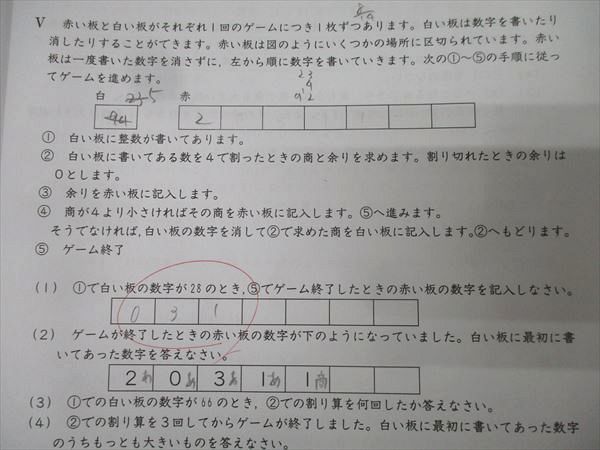 Ⅴ 赤い板と白い板がそれぞれ1回のゲームにつき1枚ずつあります。白い板は数字を書いたり
消したりすることができます。赤い板は図のようにいくつかの場所に区切られています。赤い
板は一度書いた数字を消さずに，左から順に数字を書いていきます。次の①～⑤の手順に従っ
てゲームを進めます。
白 赤
2
① 白い板に整数が書いてあります。
② 白い板に書いてある数を4で割ったときの商と余りを求めます。割り切れたときの余りは
0とします。
③ 余りを赤い板に記入します。
④ 商が4より小さければその商を赤い板に記入します。⑤へ進みます。
そうでなければ，白い板の数字を消して②で求めた商を白い板に記入します。②へもどります。
⑤ ゲーム終了
(1) ①で白い板の数字が28のとき，⑤でゲーム終了したときの赤い板の数字を記入しなさい。
0 3 1
(2) ゲームが終了したときの赤い板の数字が下のようになっていました。白い板に最初に書
いてあった数字を答えなさい。
2あ 0あ 3あ 1あ 1商
(3) ①での白い板の数字が66のとき，②での割り算を何回したか答えなさい。
(4) ②での割り算を3回してからゲームが終了しました。白い板に最初に書いてあった数字
のうちもっとも大きいものを答えなさい。